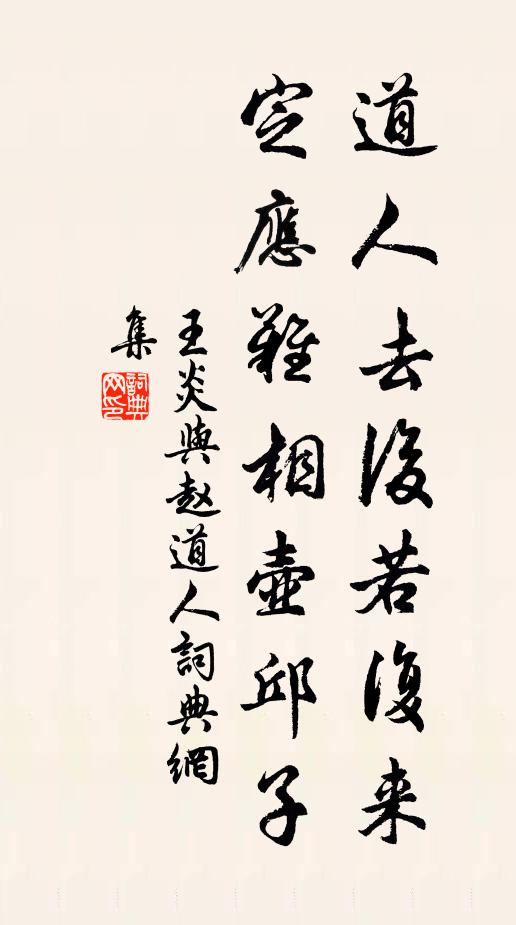 道人去後若復来
定應難相壺邱子
王炎與赵道人詞典網
集
詞典网印